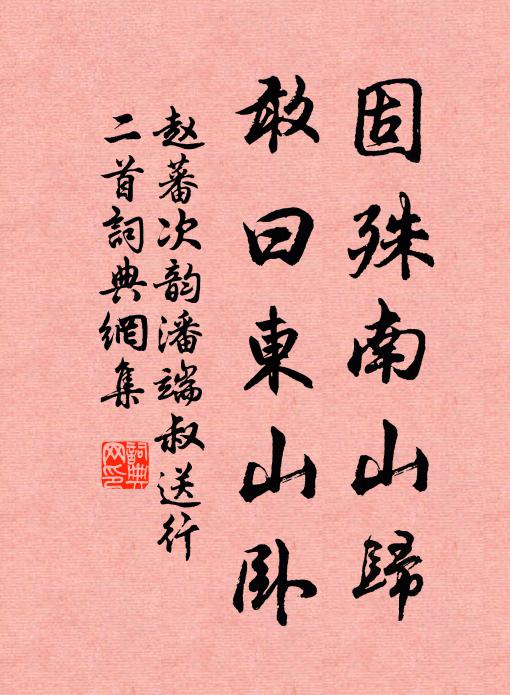 固殊南山歸
敢曰東山卧
赵蕃次韵潘端叔送行
二首詞典網集
詞典网印